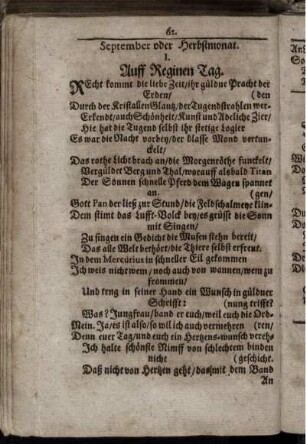 62.
September oder Herbstmonat.
I.
Auff Reginen Tag.
REcht kommt die liebe Zeit/ ihr güldne Pracht der
Erden/ (den
Durch der Kristallen Glantz/ der Tugendstrahlen wer-
Erkendt/ auch Schönheit/ Kunst und Adeliche Zier/
Hie hat die Tugend selbst ihr stetige Logier
Es war die Nacht vorbey/ der blasse Mond vertun-
ckelt/
Das rothe Licht brach an/ die Morgenröthe funckelt/
Vergüldet Berg und Thal/ worauff alsbald Titan
Der Sonnen schnelle Pferd dem Wagen spannet
an (gen/
Gott Pan der ließ zur Stund/ die Feldschalmeye klin-
Dem stimt das Lufft-Volck bey/ es grüsse die Sonn
mit Singen/
Zu singen ein Gedicht die Musen stehn bereit/
Das alle Welt bethört/ die Thiere selbst erfreut.
In dem Mercurius in schneller Eil gekommen
Ich weis nicht wem/ noch auch von wannen/ wem zu
frommen/
Und trug in seiner Hand ein Wunsch in güldner
Schrifft: (nung trifft?
Was? Jungfrau/ band er euch/ weil euch die Ord-
Mein. Ja/ es ist also/ so wil ich auch vermehren (ren/
Denn euer Tag/ und euch ein Hertzens-wunsch vereh-
Ich halte schönste Nimff von schlechtem binden
nicht (geschicht.
Daß nicht von Hertzen geht/ das mit dem Band
An